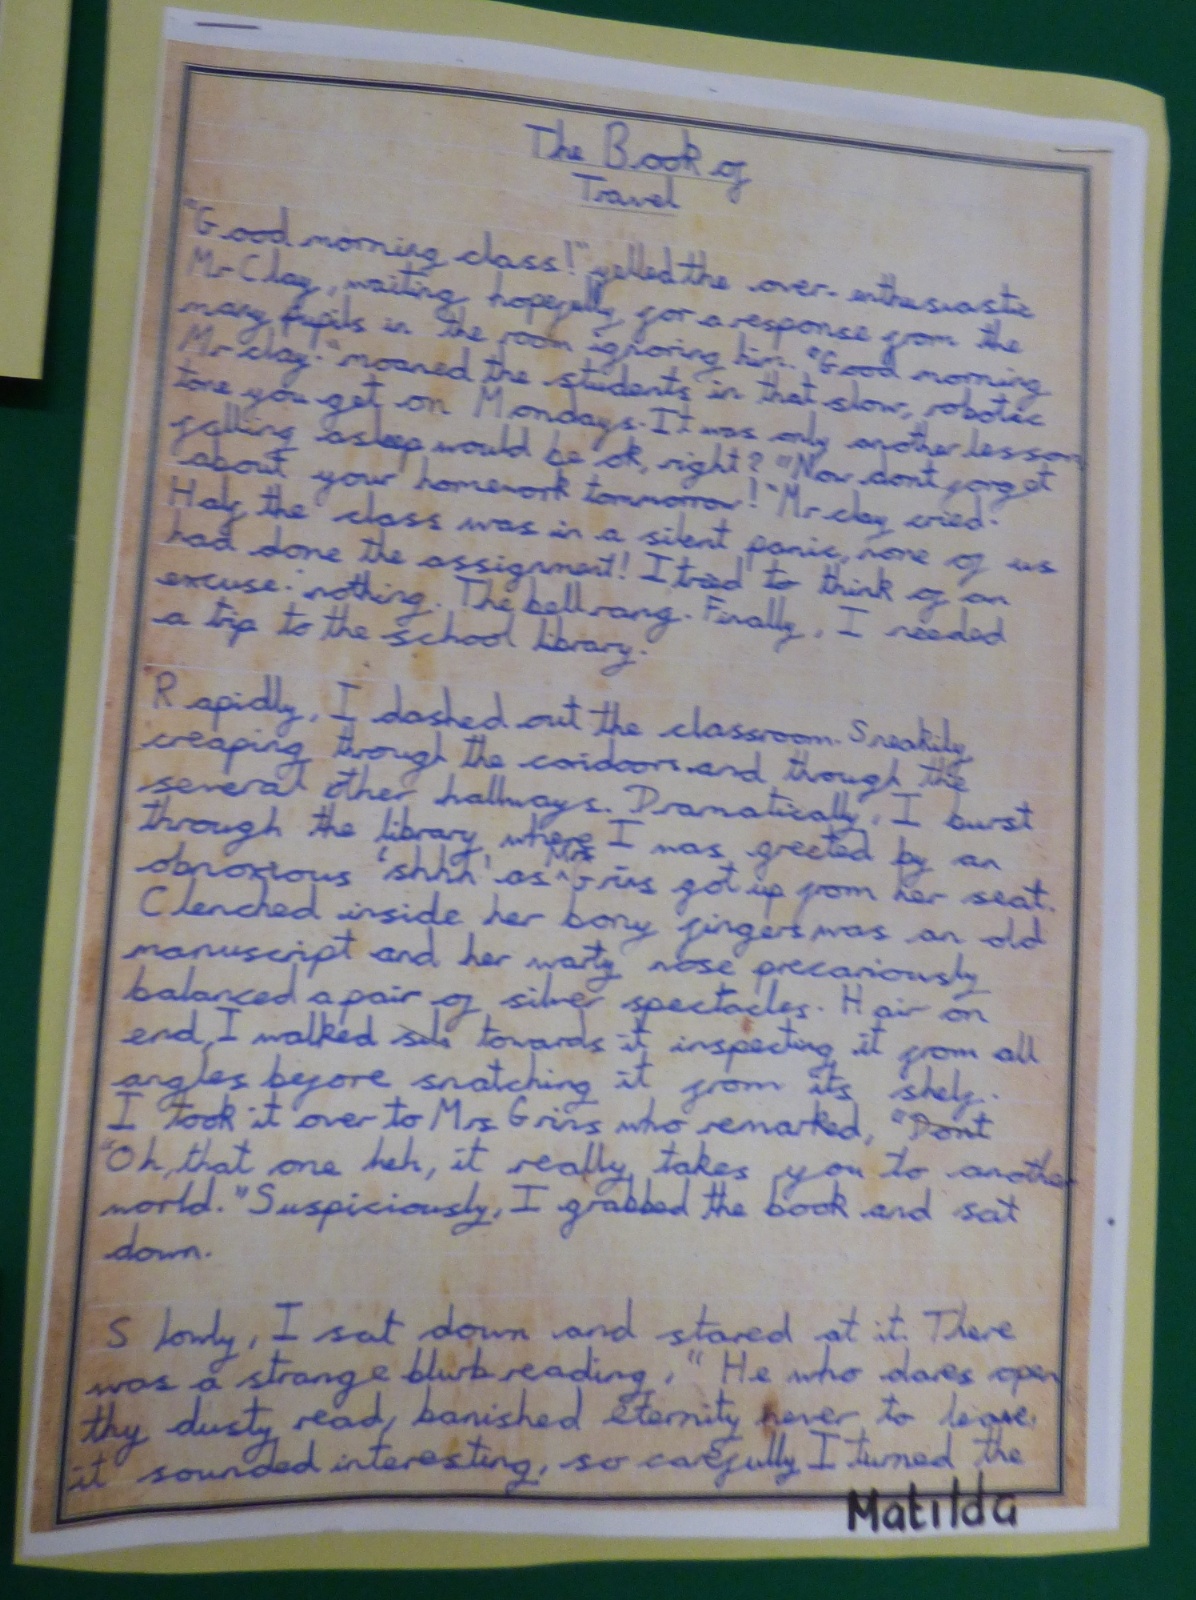 The Book of
Travel
"Good morning class!" yelled the over-enthusiastic
Mr Clay, waiting hopefully for a response from the
many pupils in the room ignoring him. "Good morning
Mr clay." moaned the students in that slow, robotic
tone you get on Mondays. It was only another lesson
falling asleep would be ok, right? "Now dont forget
about your homework tommorrow!" Mr clay cried.
Half the class was in a silent panic, none of us
had done the assignment! I tried to think of an
excuse: nothing. The bell rang. Finally, I needed
a trip to the school library.
Rapidly, I dashed out the classroom. Sneakily
creaping through the coridoors and through the
several other hallways. Dramatically, I burst
through the library where I was greeted by an
obnoxious 'shhh' as Mrs Grins got up from her seat.
Clenched inside her bony fingers was an old
manuscript and her warty nose precariously
balanced a pair of silver spectacles. Hair on
end, I walked towards it inspecting it from all
angles before snatching it from its shelf.
I took it over to Mrs Grins who remarked, "Dont
"Oh, that one heh, it really takes you to another
world." Suspiciously, I grabbed the book and sat
down.
Slowly, I sat down and stared at it. There
was a strange blurb reading, "He who dares open
thy dusty read, banished eternity never to leave.
it sounded interesting, so carefully I turned the
Matilda